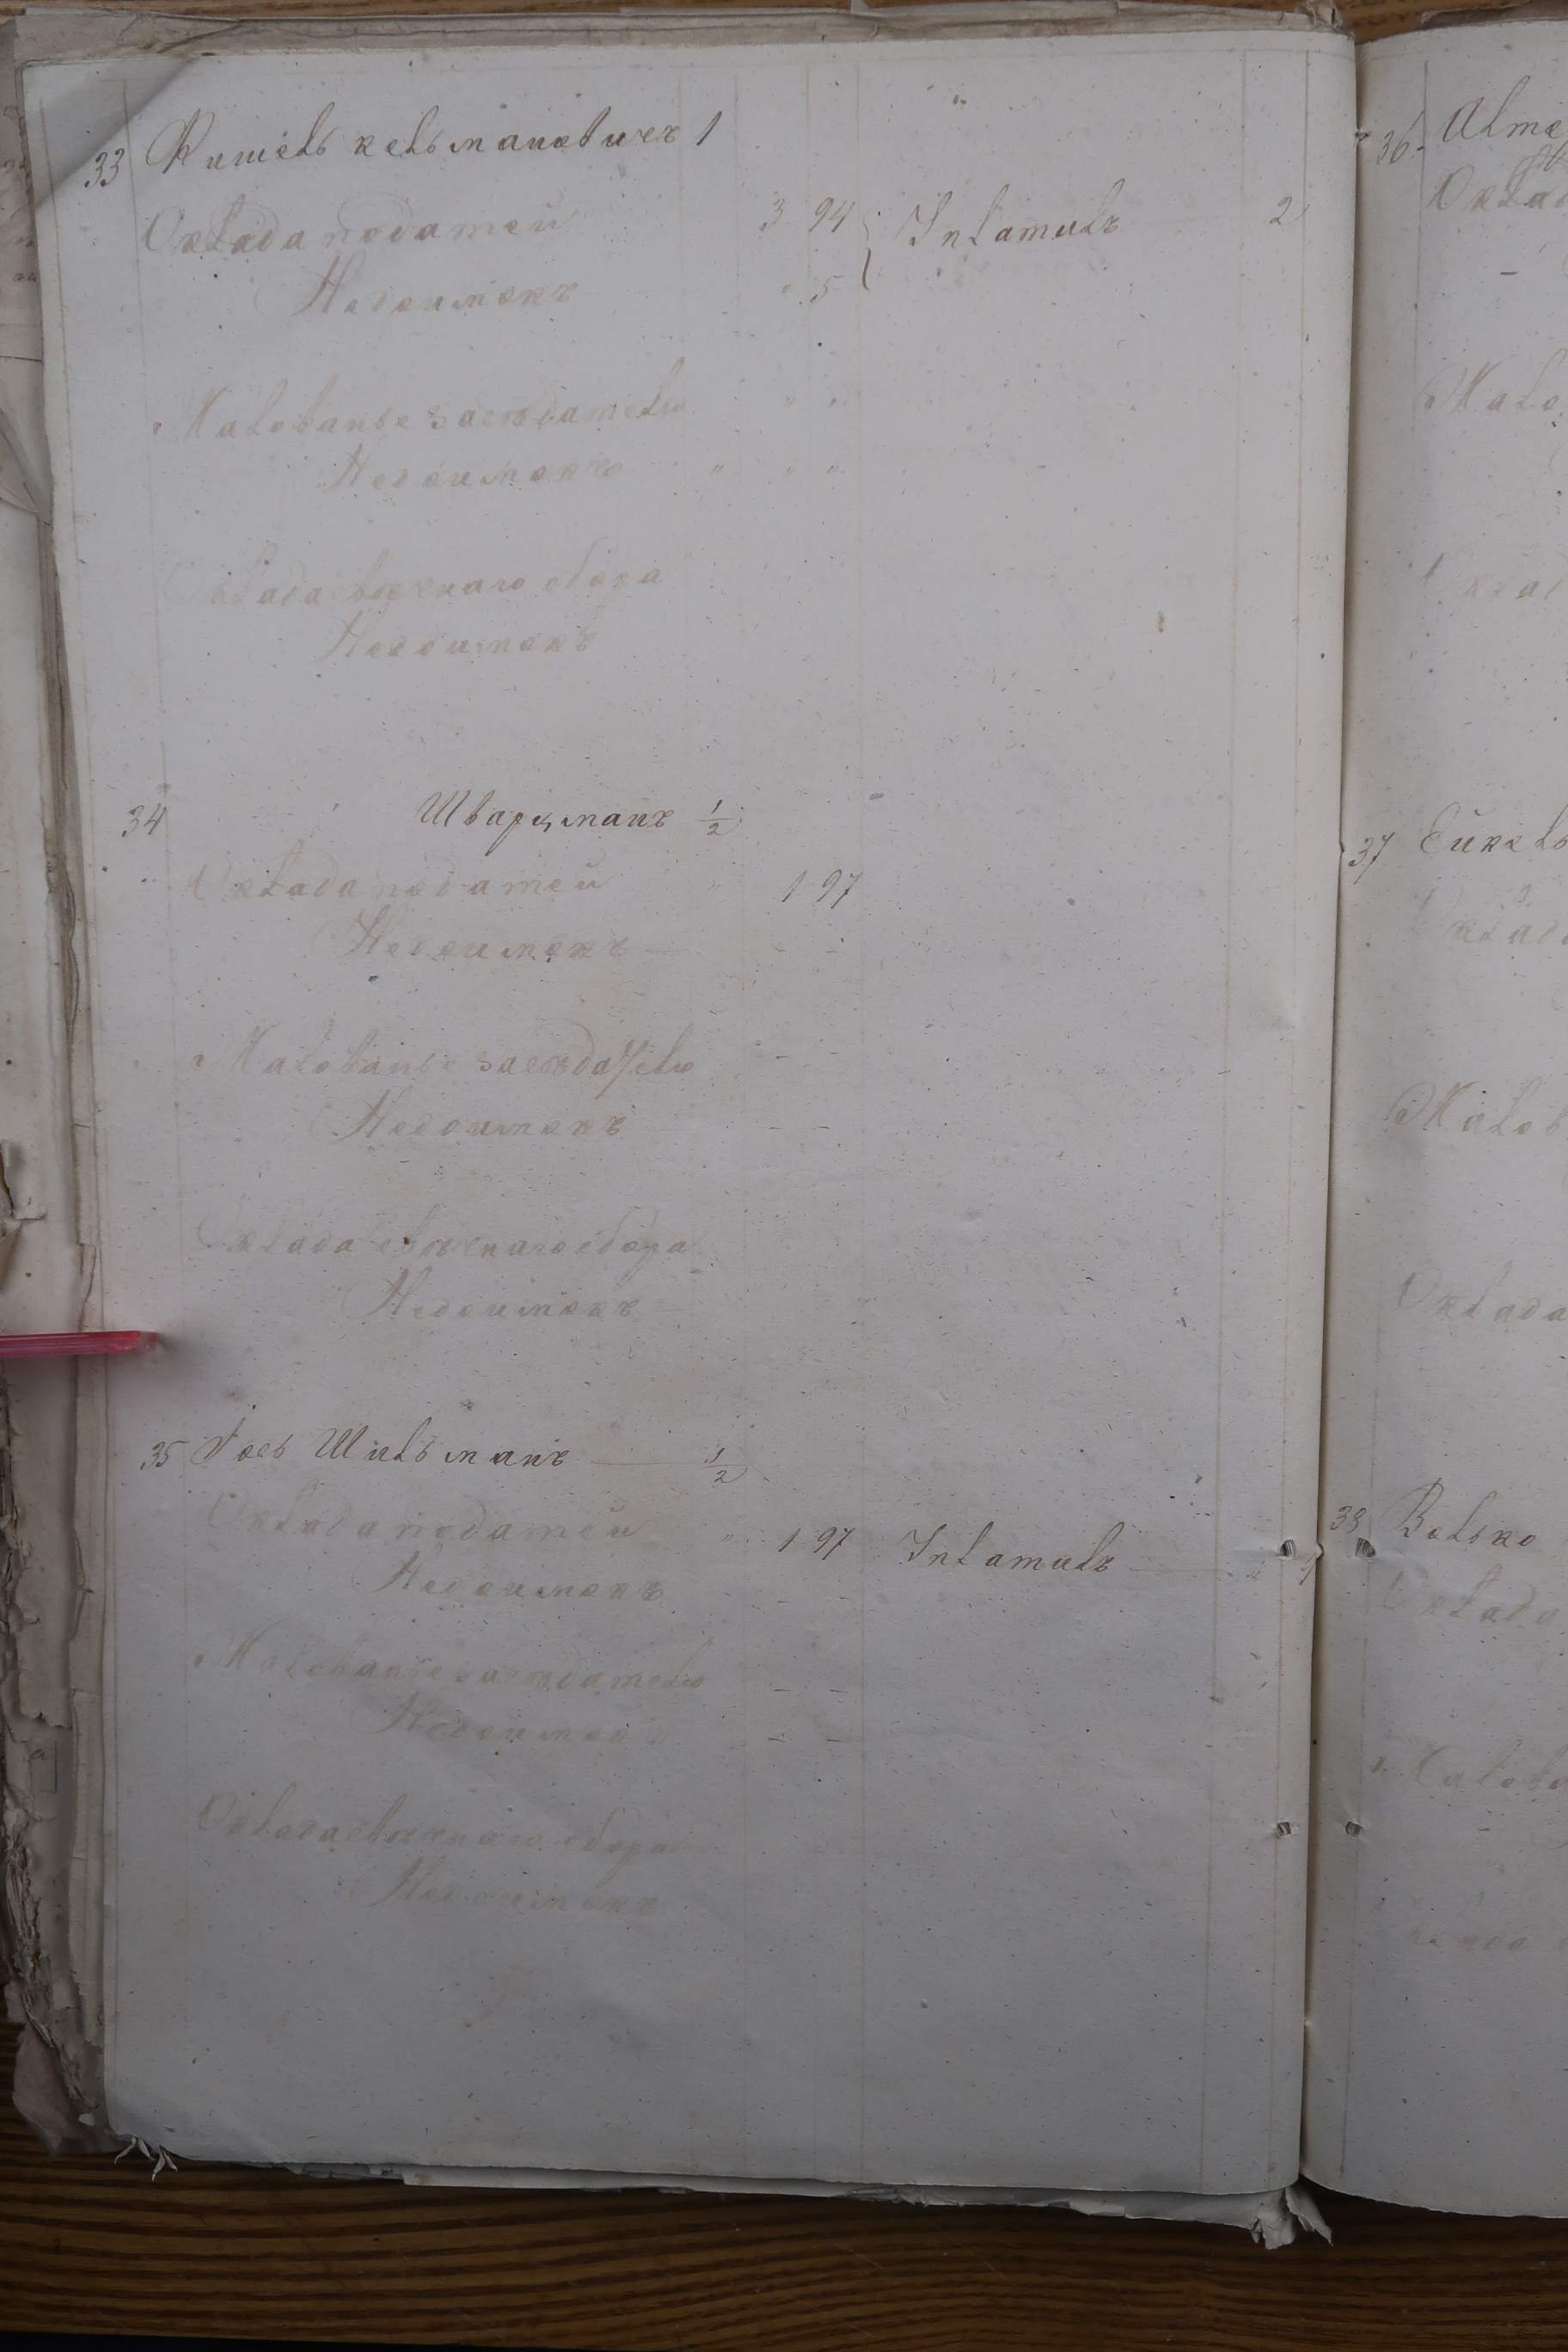 33 Кишель кельмановичъ 1
Оклада податей 3 94 } Уплатилъ 2
Недоимокъ " 5
Жалованье заседателю " "
Недоимокъ " " "
Оклада свечнаго сбора
Недоимокъ
34 Шварцманъ 1/2
Оклада податей " 1 97
Недоимокъ — - -
Жалованье заседателю - -
Недоимокъ - -
Оклада свечнаго сбора
Недоимокъ —
35 Іось Шильманъ — 1/2
Оклада податей " 1 97 Уплатилъ —
Недоимокъ - -
Жалованье заседателю - -
Недоимокъ - -
Оклада свечнаго сбора
Недоимокъ
36
Оклад
Жало
Оклад
37 Сикель
Оклад
Жалов
Оклада
38 Волько
Оклада
Жалова